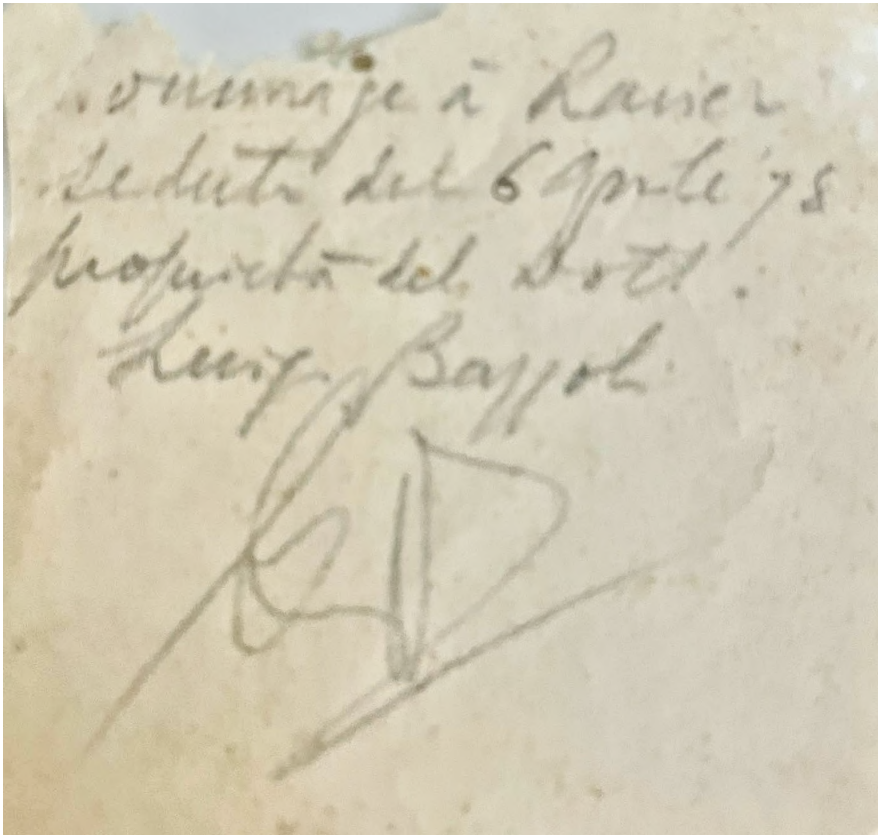 Hommage à Ranier
seduta del 6 Aprile 78
proprietà del Dott.
Luigi Bazzoli